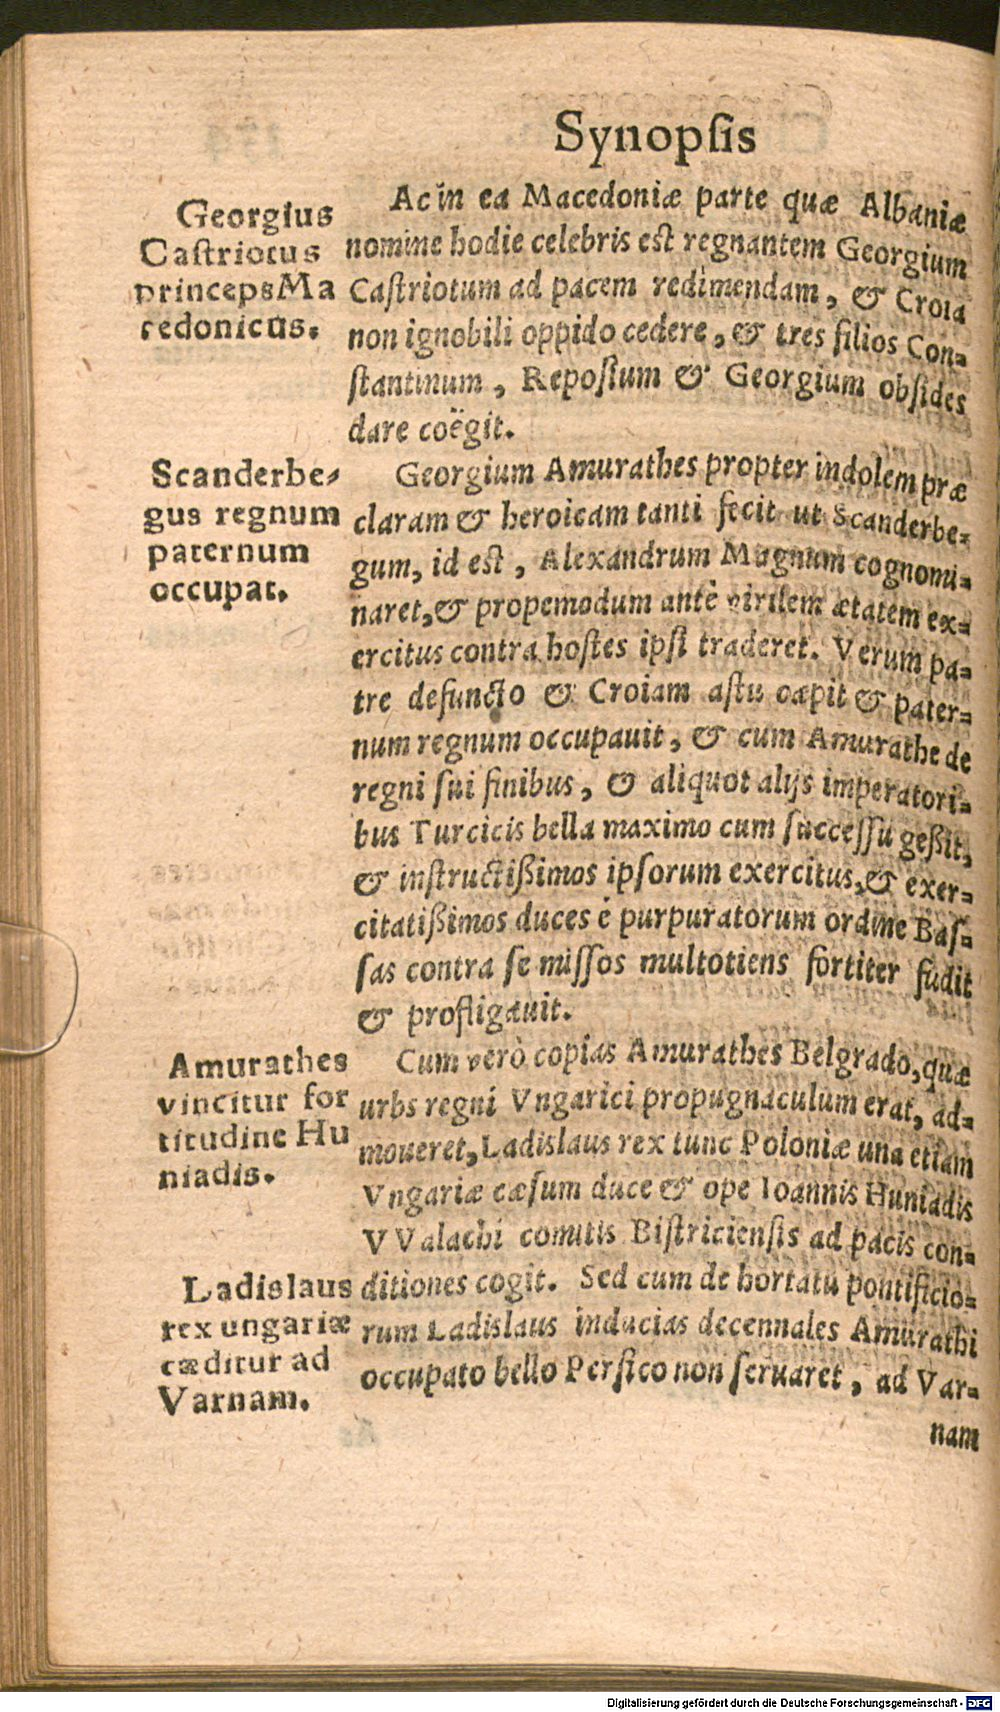 Synopſis
Georgius
Caſtriotus
princepsMa
cedonicus.
Ac in ea Macedoniæ parte quæ Albaniæ
nomine hodie celebris est regnantem Georgium
Caſtriotum ad pacem redimendam, & Croia
non ignobili oppido cedere, & tres filios Con-
ſtantinum, Repoſium & Georgium obſides
dare coëgit.
Scanderbe-
gus regnum
paternum
occupat.
Georgium Amurathes propter indolem præ
claram & heroicam tanti fecit ut Scanderbe-
gum, id est, Alexandrum Magnum cognomi-
naret, & propemodum antè virilem ætatem ex-
ercitus contra hoſtes ipſi traderet. Verum pa-
tre defuncto & Croiam aſtu cæpit & pater-
num regnum occupauit, & cum Amurathe de
regni ſui finibus, & aliquot alijs imperatori-
bus Turcicis bella maximo cum ſucceſſu geßit,
& inſtructißimos ipſorum exercitus, & exer-
citatißimos duces è purpuratorum ordine Baſ-
ſas contra ſe miſſos multotiens fortiter fudit
& profligauit.
Amurathes
vincitur for
titudine Hu
niadis.
Cum verò copias Amurathes Belgrado, quæ
urbs regni Vngarici propugnaculum erat, ad-
moueret, Ladislaus rex tunc Poloniæ una etiam
Vngariæ cæſum duce & ope Ioannis Huniadis
VValachi comitis Biſtricienſis ad pacis con-
Ladislaus
rex ungariæ
cæditur ad
Varnam.
ditiones cogit. Sed cum de hortatu pontificio-
rum Ladislaus inducias decennales Amurathi
occupato bello Perſico non ſeruaret, ad Var-
nam
Digitalisierung gefördert durch die Deutsche Forschungsgemeinschaft - DFG